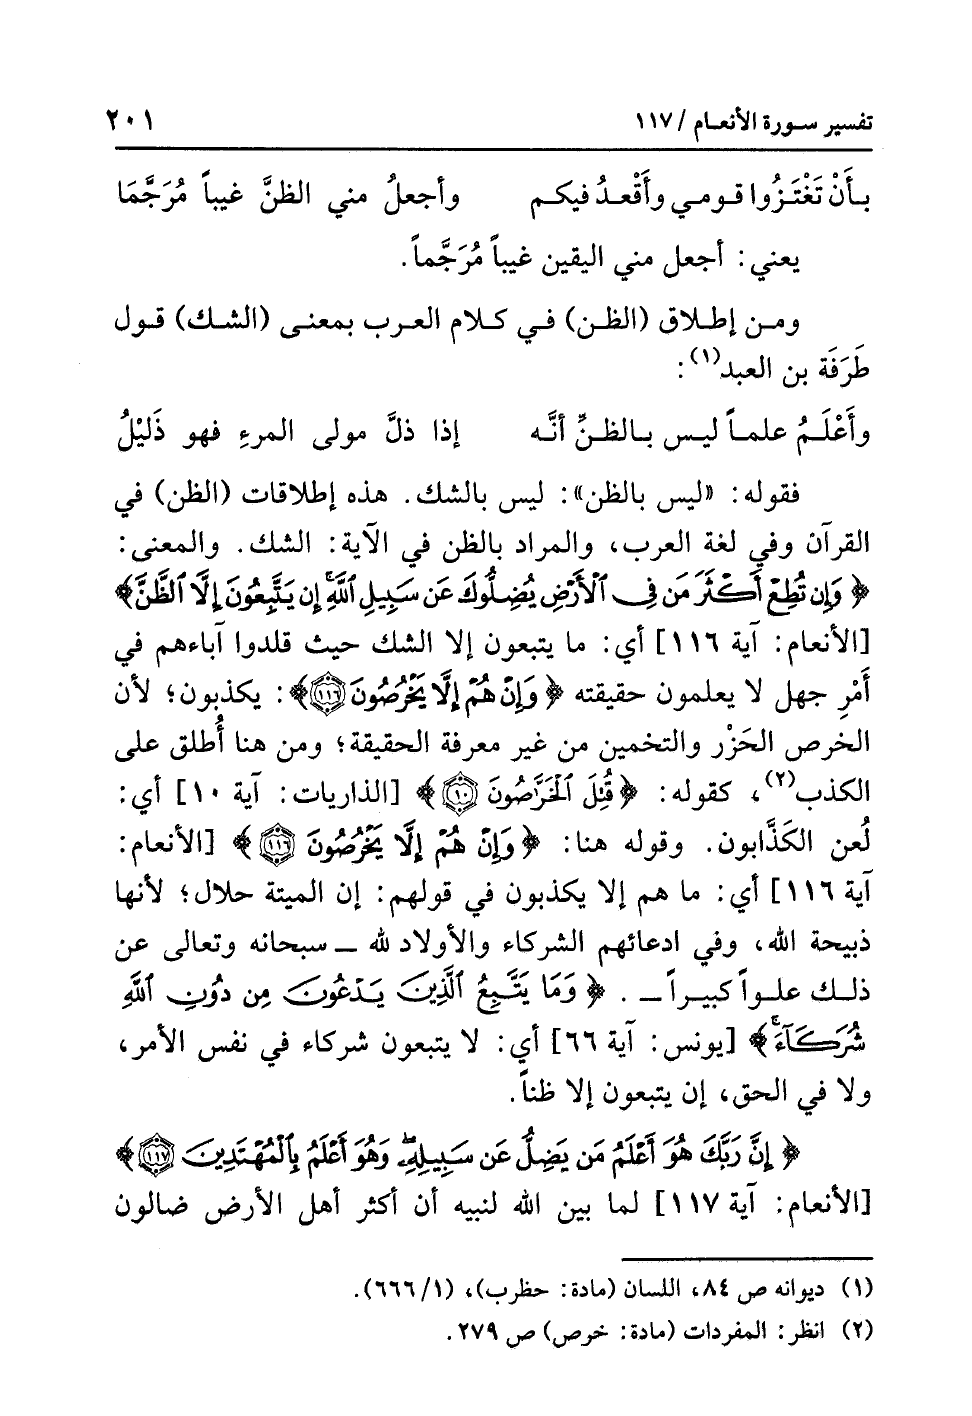 تفسير سورة الأنعام / ١١٧ ٢٠١
بأَنْ تَغْتَزُوا قومي وأَقْعدُ فيكم وأجعلُ مني الظنَّ غيباً مُرَجَّمَا
يعني: أجعل مني اليقين غيباً مُرَجَّماً.
ومن إطلاق (الظن) في كلام العرب بمعنى (الشك) قول
طَرَفَة بن العبد(١):
وأَعْلَمُ علماً ليس بالظنِّ أنَّه إذا ذلَّ مولى المرءِ فهو ذَليْلُ
فقوله: «ليس بالظن»: ليس بالشك. هذه إطلاقات (الظن) في
القرآن وفي لغة العرب، والمراد بالظن في الآية: الشك. والمعنى:
﴿وَإِن تُطِعْ أَكْثَرَ مَن فِى ٱلْأَرْضِ يُضِلُّوكَ عَن سَبِيلِ ٱللَّهِۚ إِن يَتَّبِعُونَ إِلَّا ٱلظَّنَّ﴾
[الأنعام: آية ١١٦] أي: ما يتبعون إلا الشك حيث قلدوا آباءهم في
أَمْرِ جهل لا يعلمون حقيقته ﴿وَإِنْ هُمْ إِلَّا يَخْرُصُونَ ١١٦﴾: يكذبون؛ لأن
الخرص الحَزْر والتخمين من غير معرفة الحقيقة؛ ومن هنا أُطلق على
الكذب(٢)، كقوله: ﴿قُتِلَ ٱلْخَرَّٰصُونَ ١٠﴾ [الذاريات: آية ١٠] أي:
لُعن الكَذَّابون. وقوله هنا: ﴿وَإِنْ هُمْ إِلَّا يَخْرُصُونَ ١١٦﴾ [الأنعام:
آية ١١٦] أي: ما هم إلا يكذبون في قولهم: إن الميتة حلال؛ لأنها
ذبيحة الله، وفي ادعائهم الشركاء والأولاد لله ــ سبحانه وتعالى عن
ذلك علواً كبيراً ــ . ﴿وَمَا يَتَّبِعُ ٱلَّذِينَ يَدْعُونَ مِن دُونِ ٱللَّهِ
شُرَكَآءَۚ﴾ [يونس: آية ٦٦] أي: لا يتبعون شركاء في نفس الأمر،
ولا في الحق، إن يتبعون إلا ظناً.
﴿إِنَّ رَبَّكَ هُوَ أَعْلَمُ مَن يَضِلُّ عَن سَبِيلِهِۖ وَهُوَ أَعْلَمُ بِٱلْمُهْتَدِينَ ١١٧﴾
[الأنعام: آية ١١٧] لما بين الله لنبيه أن أكثر أهل الأرض ضالون
(١) ديوانه ص ٨٤، اللسان (مادة: حظرب)، (١/٦٦٦).
(٢) انظر: المفردات (مادة: خرص) ص ٢٧٩.